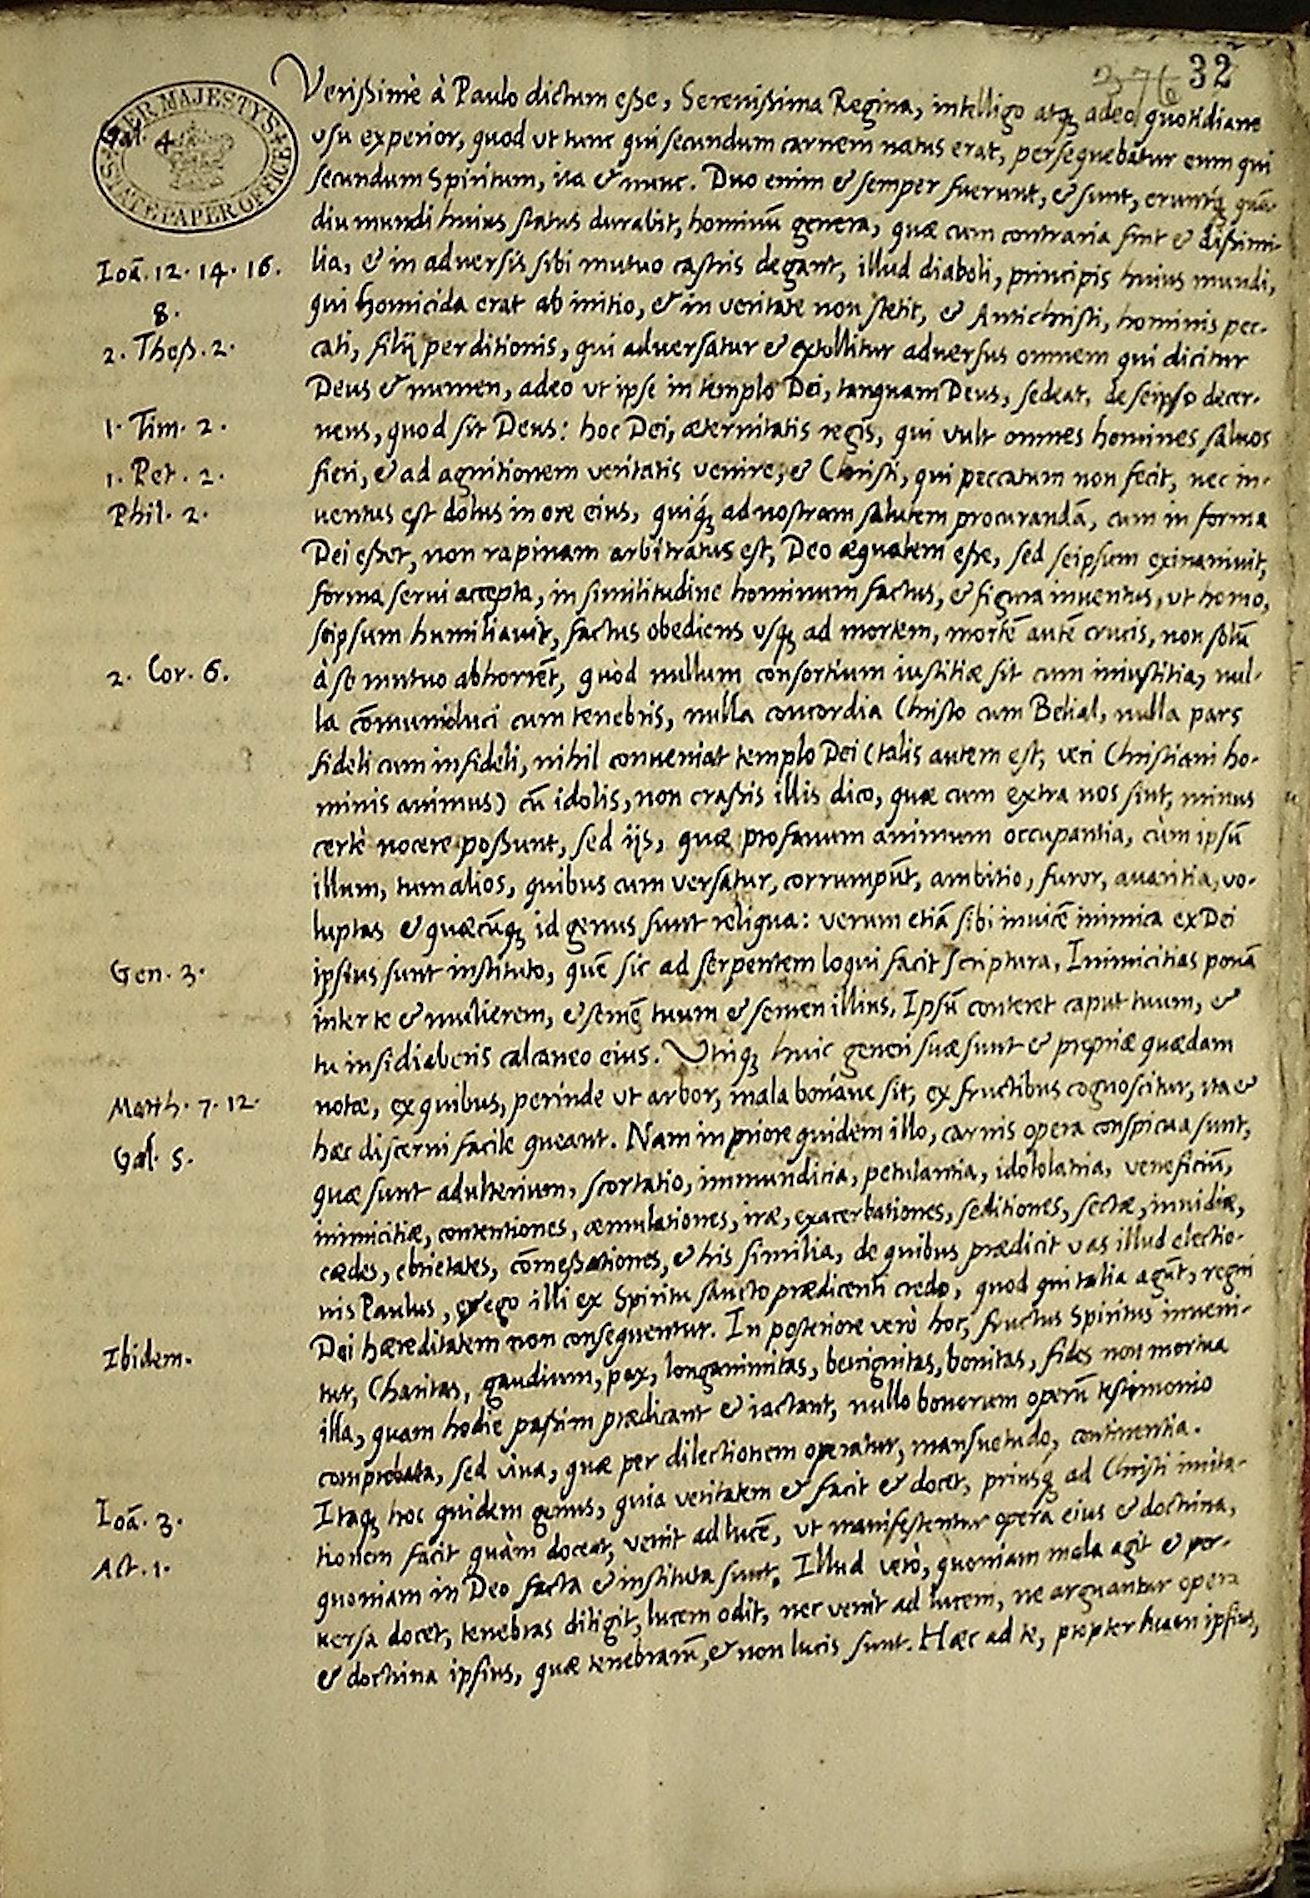 32
376
HER MAJESTY'S STATE PAPER OFFICE
Gal. 4
Verißimè à Paulo dictum eße, Serenißima Regina, intelligo atq; adeo quotidiano
usu experior, quod ut tunc qui secundum carnem natus erat, persequebatur eum qui
secundum Spiritum, ita & nunc. Duo enim & semper fuerunt, & sunt, eruntq; quã-
diu mundi huius status durabit, hominũ genera, quæ cum contraria sint & dißimi-
Ioã. 12. 14. 16.
lia, & in adversis sibi mutuo castris degant, illud diaboli, principis huius mundi,
8.
qui homicida erat ab initio, & in veritate non stetit, & Antichristi, hominis pec-
2. Theß. 2.
cati, filij perditionis, qui adversatur & extollitur adversus omnem qui dicitur
Deus & numen, adeo ut ipse in templo Dei, tanquam Deus, sedeat, de seipso decer-
1. Tim. 2.
nens, quod sit Deus: hoc Dei, æternitatis regis, qui vult omnes homines salvos
1. Pet. 2.
fieri, & ad agnitionem veritatis venire, & Christi, qui peccatum non fecit, nec in-
Phil. 2.
ventus est dolus in ore eius, quiq; ad nostram salutem procurandã, cum in forma
Dei eßet, non rapinam arbitratus est, Deo æqualem eße, sed seipsum exinanivit,
forma servi accepta, in similitudine hominum factus, & figura inventus, ut homo,
seipsum humiliavit, factus obediens usq; ad mortem, mortẽ autẽ crucis, non solũ
2. Cor. 6.
à se mutuo abhorrẽt, quòd nullum consortium iustitiæ sit cum iniustitia, nul-
la cõmunio luci cum tenebris, nulla concordia Christo cum Belial, nulla pars
fideli cum infideli, nihil conveniat templo Dei (talis autem est, veri Christiani ho-
minis animus) cũ idolis, non craßis illis dico, quæ cum extra nos sint, minus
certè nocere poßunt, sed ijs, quæ profanum animum occupantia, cùm ipsũ
illum, tum alios, quibus cum versatur, corrumpũt, ambitio, furor, avaritia, vo-
luptas & quæcũq; id genus sunt reliqua: verum etiã sibi invicẽ inimica ex Dei
Gen. 3.
ipsius sunt instituto, quẽ sic ad serpentem loqui facit Scriptura, Inimicitias ponã
inter te & mulierem, & semẽ tuum & semen illius, Ipsũ conteret caput tuum, &
tu insidiaberis calcaneo eius. Utriq; huic generi suæ sunt & propriæ quædam
Matth. 7. 12.
notæ, ex quibus, perinde ut arbor, mala bonáve sit, ex fructibus cognoscitur, ita &
hæc discerni facile queant. Nam in priore quidem illo, carnis opera conspicua sunt,
Gal. 5.
quæ sunt adulterium, scortatio, immundicia, petulantia, idololatria, veneficiũ,
inimicitiæ, contentiones, æmulationes, iræ, exacerbationes, seditiones, sectæ, invidiæ,
cædes, ebrietates, cõmeßationes, & his similia, de quibus prædicit vas illud electio-
nis Paulus, & ego illi ex Spiritu sancto prædicenti credo, quod qui talia agũt, regni
Dei hæreditatem non consequentur. In posteriore verò hoc, fructus Spiritus inveni-
Ibidem.
tur, Charitas, gaudium, pax, longanimitas, benignitas, bonitas, fides non mortua
illa, quam hodie paßim prædicant & iactant, nullo bonorum operũ testimonio
comprobata, sed viva, quæ per dilectionem operatur, mansuetudo, continentia.
Ioã. 3.
Itaq; hoc quidem genus, quia veritatem & facit & docet, priusq; ad Christi imita-
Act. 1.
tionem facit quàm doceat, venit ad lucẽ, ut manifestentur opera eius & doctrina,
quoniam in Deo facta & instituta sunt. Illud verò, quoniam mala agit & per-
versa docet, tenebras diligit, lucem odit, nec venit ad lucem, ne arguantur opera
& doctrina ipsius, quæ tenebrarũ, & non lucis sunt. Hæc ad te, propter hæc ipsius,